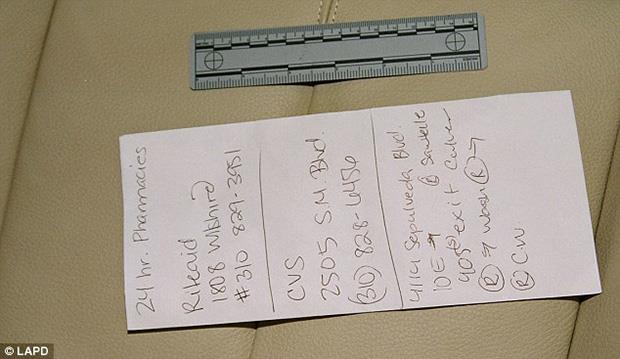 24 hr. Pharmacies
Riteaid
1808 Wilshire
#310 829-3951
CVS
2505 S.M. Blvd.
(310) 828-6456
4114 Sepulveda Blvd.
10 E → @ Sawtelle
405 exit Culver
(R) → Wash (R) →
(R) C.W.
© LAPD